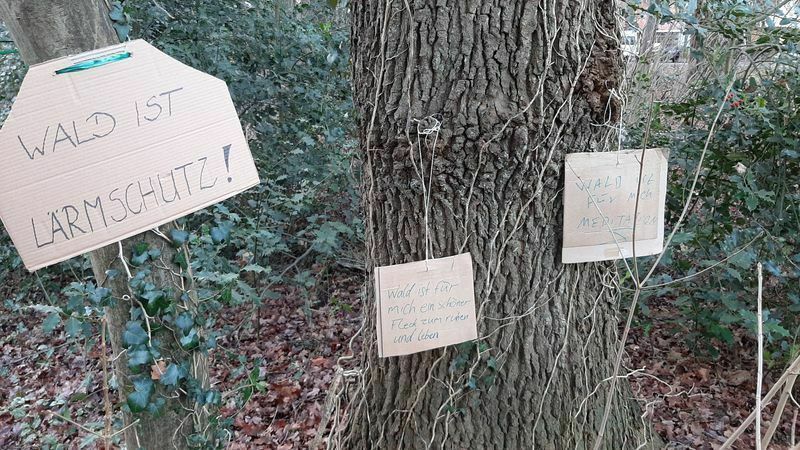 WALD IST
LÄRMSCHUTZ!
Wald ist für
mich ein schöner
Fleck zum ruhen
und leben
WALD IST
FÜR MICH
MEDITATION